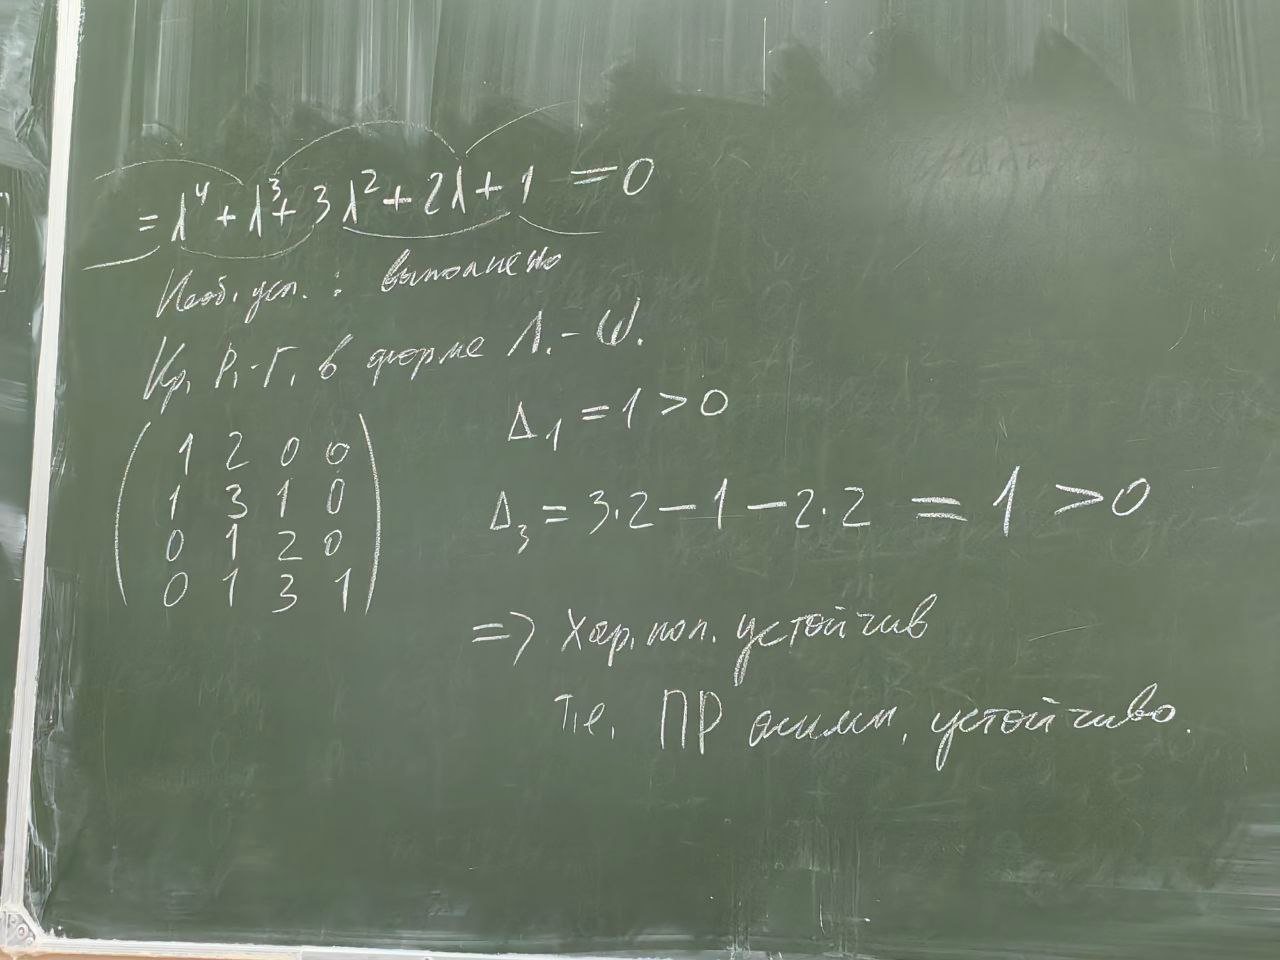 = λ⁴ + λ³ + 3λ² + 2λ + 1 = 0
Необ. усл. : выполнено
Кр. Р.-Г. в форме Л.-Ш.
1 2 0 0
1 3 1 0
0 1 2 0
0 1 3 1
Δ₁ = 1 > 0
Δ₃ = 3·2 – 1 – 2·2 = 1 > 0
=> Хар. пол. устойчив
Т.е. ПР асимп. устойчиво.